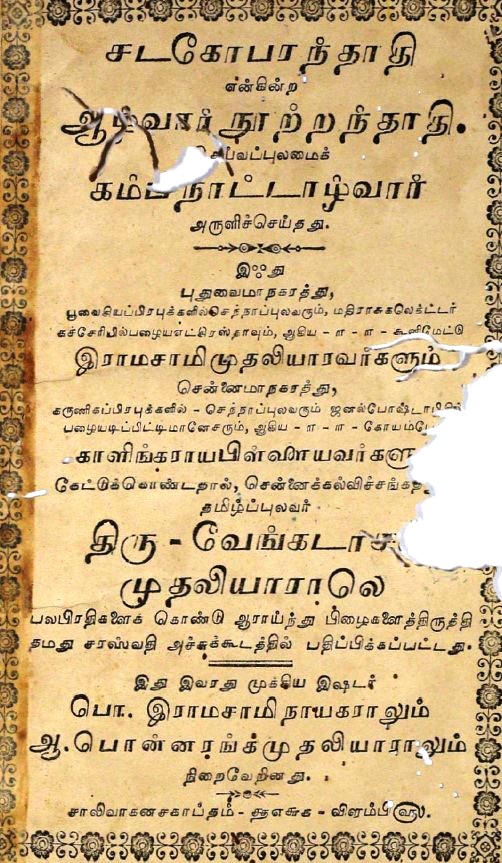 சடகோபரந்தாதி
என்கின்ற
ஆழ்வார் நூற்றந்தாதி.
கம்பநாட்டாழ்வார்
அருளிச்செய்தது.
இஃது
புதுவைமாநகரத்து,
பூவைசியப்பிரபுக்களில்செந்நாப்புலவரும், மதிராசுகலெக்ட்டர்
இராமசாமிமுதலியாரவர்களும்
சென்னைமாநகரத்து,
கருணிகப்பிரபுக்களில் - செந்நாப்புலவரும்
ஆகிய - ௱ - ௱ -
காளிங்கராயபிள்ளையவர்களு
கேட்டுக்கொண்டதால், சென்னைக்கல்விச்சங்க
தமிழ்ப்புலவர்
திரு - வேங்கடாச
முதலியாராலே
பலபிரதிகளைக் கொண்டு ஆராய்ந்து பிழைகளைத்திருத்தி
தமது சரஸ்வதி அச்சுக்கூடத்தில் பதிப்பிக்கப்பட்டது.
இது இவரது முக்கிய இஷ்டர்
பொ. இராமசாமிநாயகராலும்
ஆ. பொன்னரங்கமுதலியாராலும்
நிறைவேறினது.
சாலிவாகனசகாப்தம் - ௲௭௱௮௰௧ - விளம்பி௵.